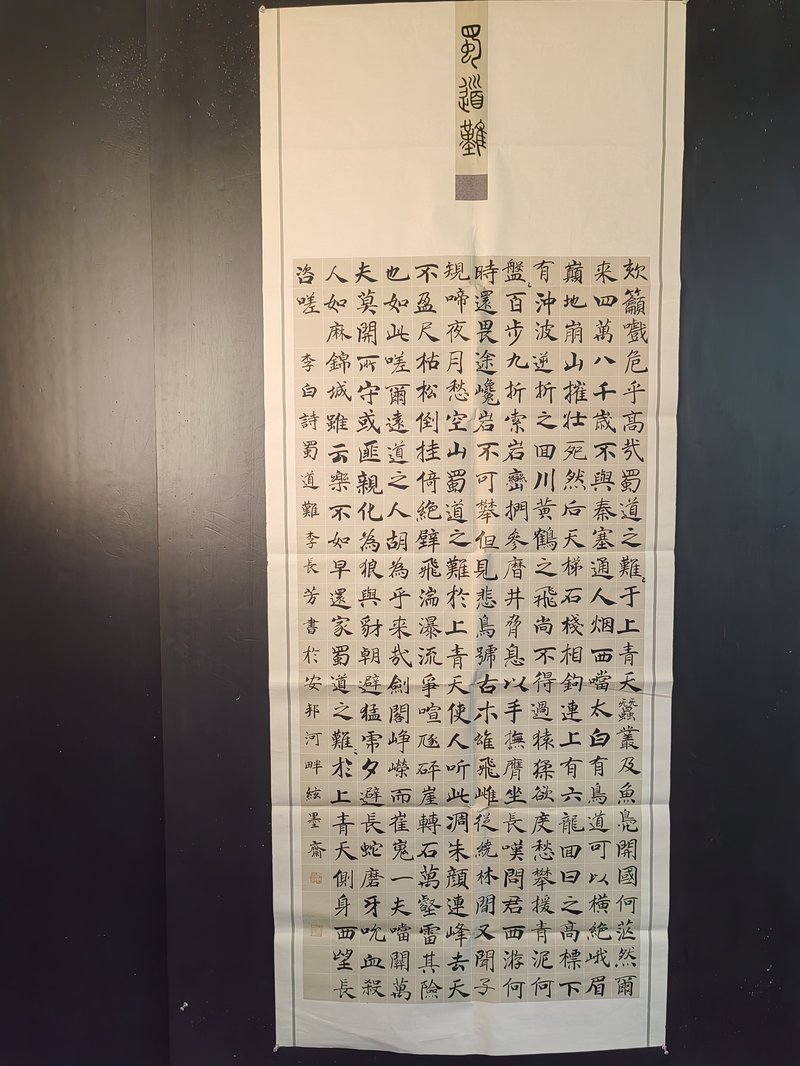 蜀道難
欬籲嚱危乎高哉蜀道之難〻于上青天蠶叢及魚鳧開國何茫然爾
来四萬八千歲不與秦塞通人烟西噹太白有鳥道可以橫絶峨眉
巔地崩山摧壯死然后天梯石棧相鉤連上有六龍回日之高標下
有沖波逆折之回川黃鶴之飛尚不得過猿猱欲度愁攀援青泥何
盤〻百步九折索岩巒捫參曆井脅息以手撫膺坐長嘆問君西游何
時還畏途巉岩不可攀但見悲鳥號古木雄飛雌從繞林間又聞子
規啼夜月愁空山蜀道之難於上青天使人听此凋朱顔連峰去天
不盈尺枯松倒挂倚絶壁飛湍瀑流爭喧豗砯崖轉石萬壑雷其險
也如此嗟爾遠道之人胡為乎来哉劍閣崢嶸而崔嵬一夫噹關萬
夫莫開所守或匪親化為狼與豺朝避猛虎夕避長蛇磨牙吮血殺
人如麻錦城雖云樂不如早還家蜀道之難〻於上青天側身西望長
咨嗟 李白詩蜀道難李長芳書於安邦河畔絃墨齋